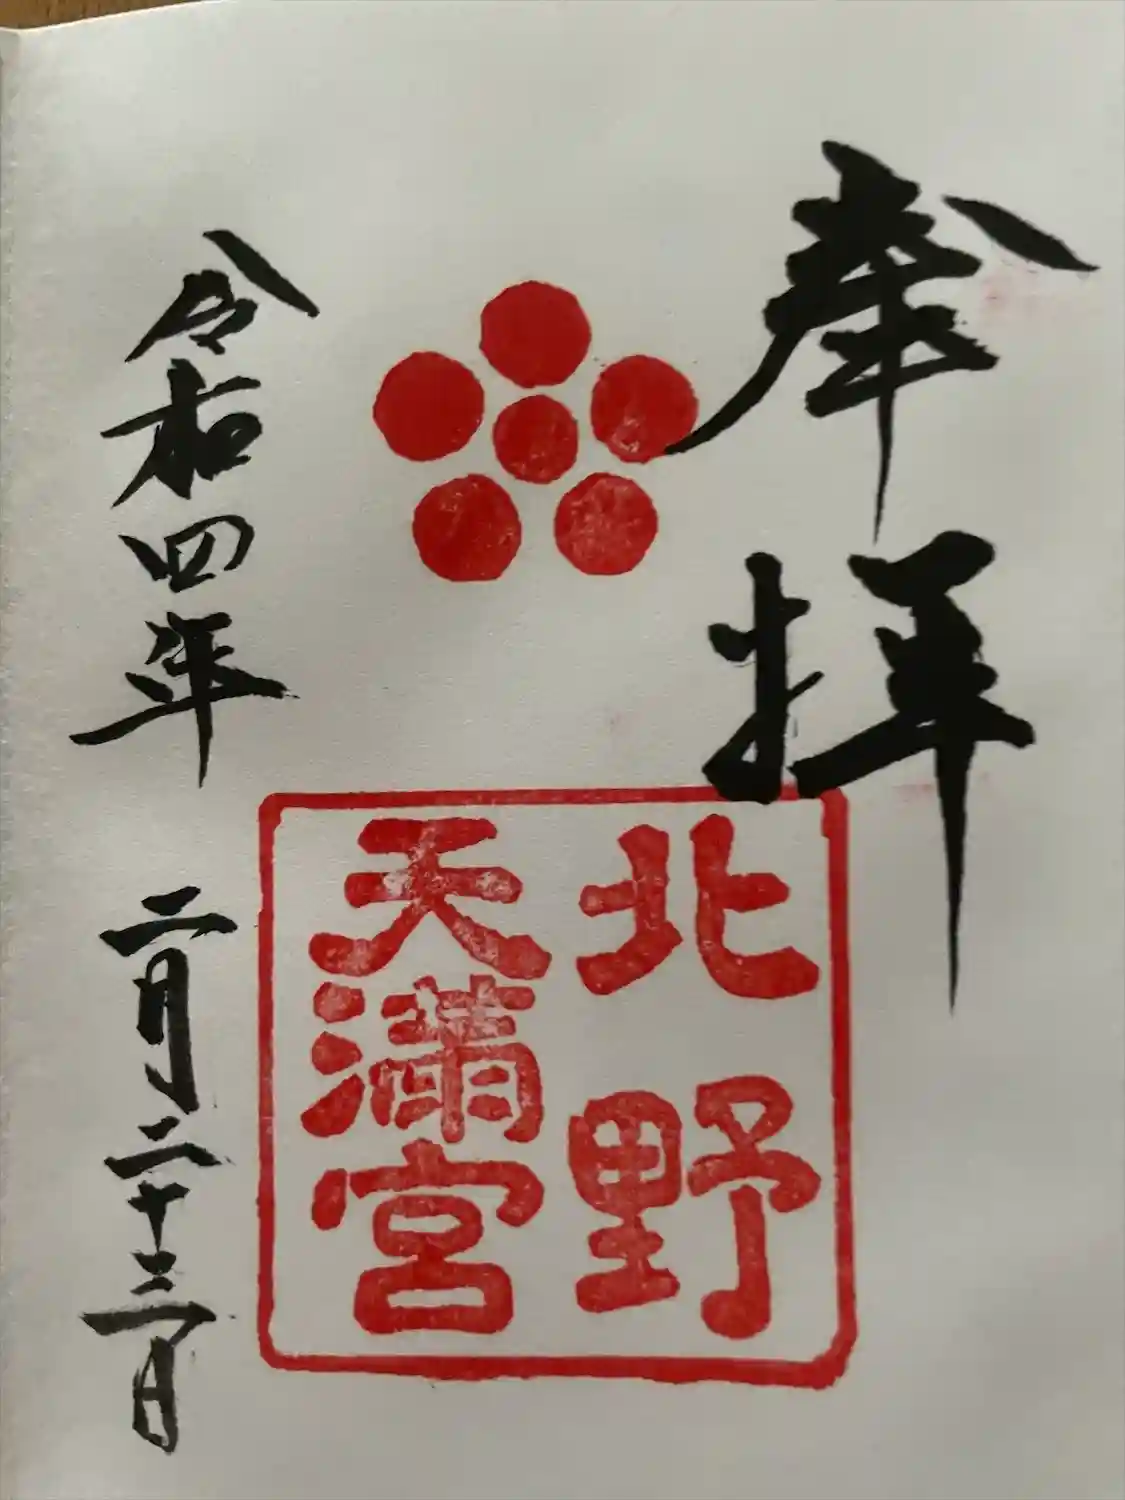 奉拝
北野
天満宮
令和四年 二月二十三日